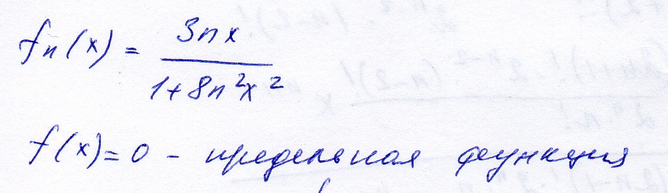 fn(x) = 3nx / 1+8n²x²
f(x)=0 - предельная функция